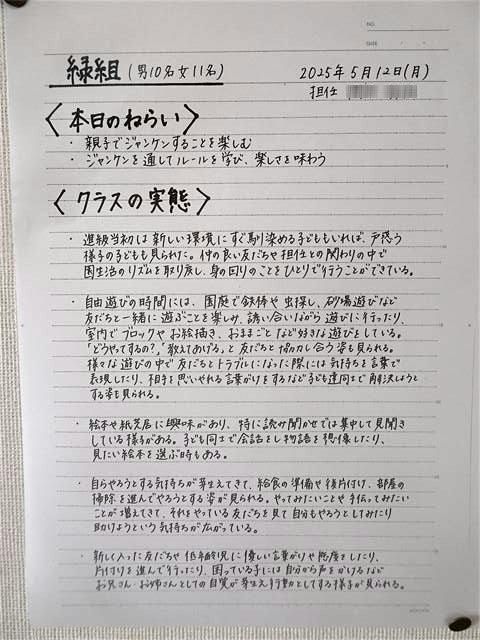 NO.
DATE
緑組(男10名女11名)
2025年5月12日(月)
担任
〈本日のねらい〉
・親子でジャンケンすることを楽しむ
・ジャンケンを通してルールを学び、楽しさを味わう
〈クラスの実態〉
・進級当初は新しい環境にすぐ馴り染める子どももいれば、戸惑う
様子の子どもも見られた。仲の良い友だちや担任との関わりの中で
園生活のリズムを取り戻し、身の回りのことをひとりで行うことができている。
・自由遊びの時間には、園庭で鉄棒や虫探し、砂場遊びなど
友だちと一緒に遊ぶことを楽しみ、誘い合いながら遊びに行ったり、
室内でブロックやお絵描き、おままごとなど好きな遊びをしている。
「どうやってするの?」「教えてあげる」と友だちと協力し合う姿も見られる。
様々な遊びの中で友だちとトラブルになった際には気持ちを言葉で
表現したり、相手を思いやれる言葉がけをするなど子ども達同士で解決しようと
する姿も見られる。
・絵本や紙芝居に興味があり、特に読み聞かせでは集中して見聞き
している様子がある。子ども同士で会話をし物語を想像したり、
見たい絵本を選ぶ時もある。
・自らやろうとする気持ちが芽生えてきて、給食の準備や後片付け、部屋の
掃除を進んでやろうとする姿が見られる。やってみたいことや手伝ってみたい
ことが増えてきて、それをやっている友だちを見て自分もやろうとしてみたり
助けようという気持ちが広がっている。
・新しく入った友だちや低年齢児に優しい言葉がけや態度をしたり、
片付けを進んで行ったり、困っている子には自分から声をかけるなど
お兄さん・お姉さんとしての自覚が芽生え行動としてする様子が見られる。